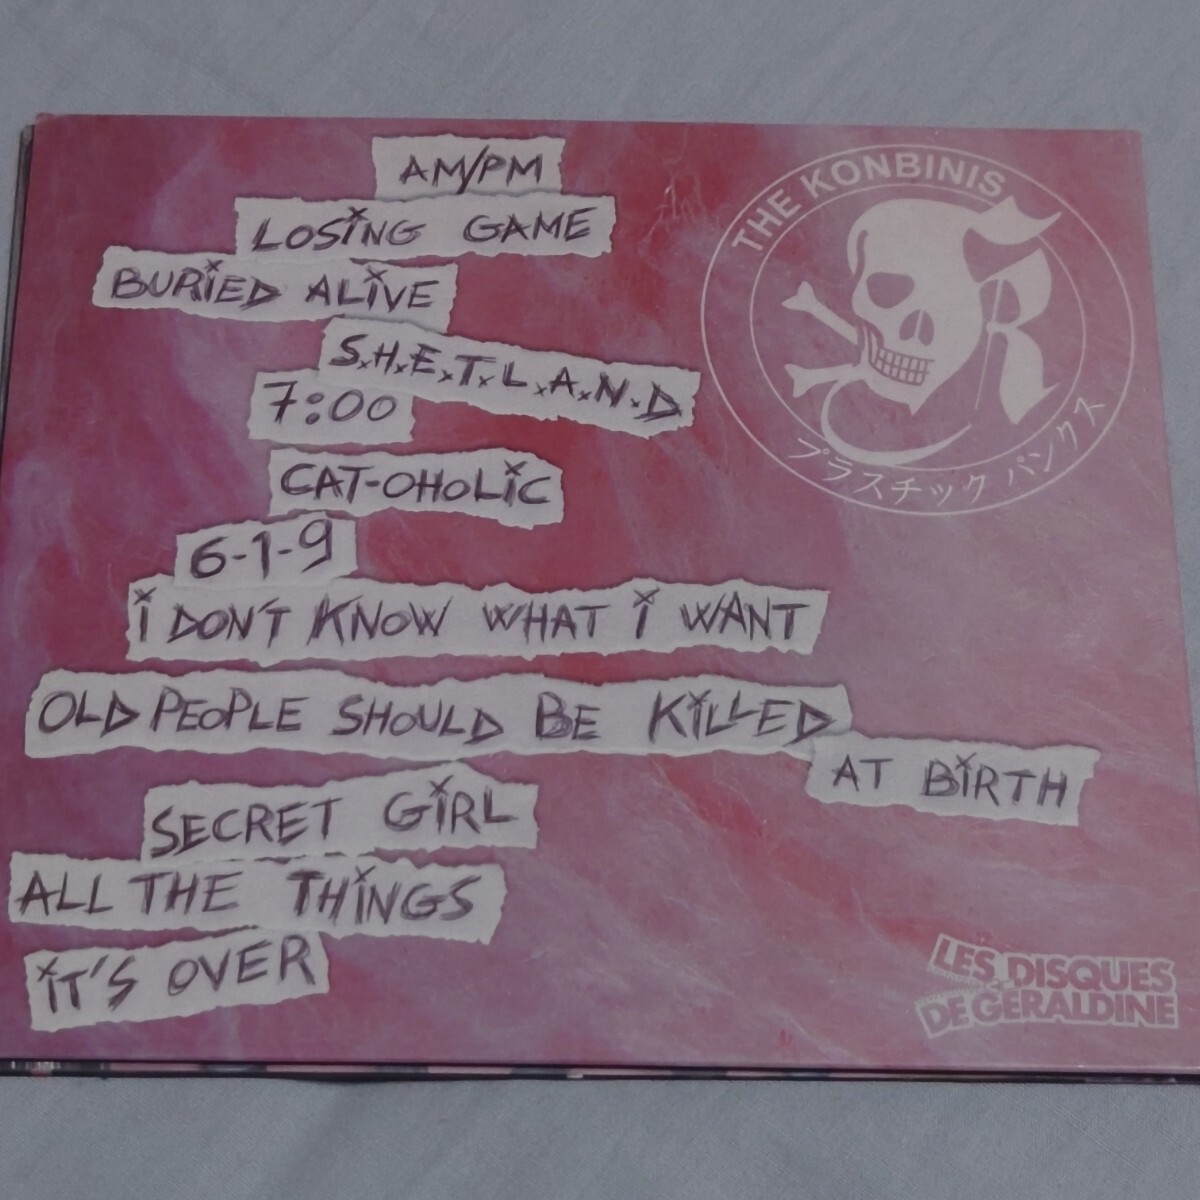 AM/PM
LOSING GAME
BURIED ALIVE
S.H.E.T.L.A.N.D
7:00
CAT-OHOLIC
6-1-9
I DON'T KNOW WHAT I WANT
OLD PEOPLE SHOULD BE KILLED
AT BIRTH
SECRET GIRL
ALL THE THINGS
IT'S OVER
THE KONBINIS
プラスチック パンクス
LES DISQUES
DE GÉRALDINE